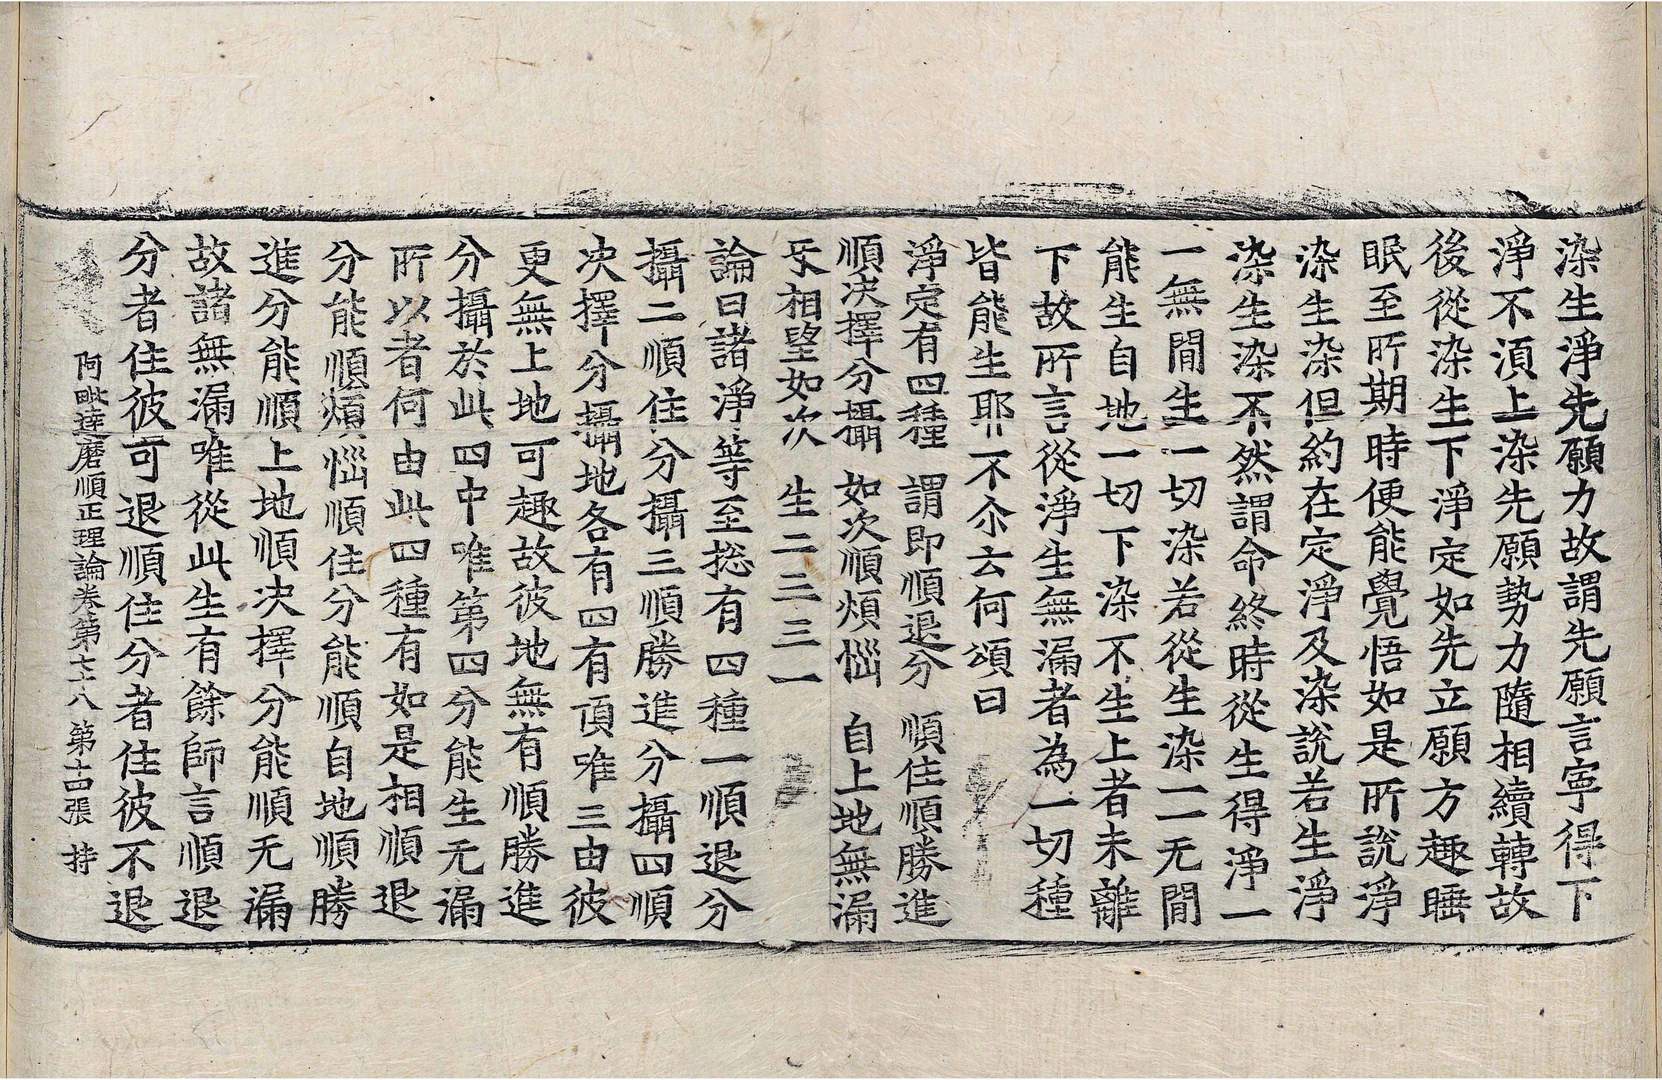 染生淨先願力故謂先願言寧得下
淨不湏上染先願勢力隨相續轉故
後從染生下淨定如先立願方趣睡
眠至所期時便能覺悟如是所說淨
染生染但約在定淨及染說若生淨
染生染不然謂命終時從生得淨一
一無間生一切染若從生染一一无間
能生自地一切下染不生上者未離
下故所言從淨生無漏者為一切種
皆能生耶不尒云何頌曰
淨定有四種 謂即順退分 順住順勝進
順決擇分攝 如次順煩惱 自上地無漏
互相望如次 生二三三一
論曰諸淨等至揔有四種一順退分
攝二順住分攝三順勝進分攝四順
决擇分攝地各有四有頂唯三由彼
更無上地可趣故彼地無有順勝進
分攝於此四中唯第四分能生无漏
所以者何由此四種有如是相順退
分能順煩惱順住分能順自地順勝
進分能順上地順决擇分能順无漏
故諸無漏唯從此生有餘師言順退
分者住彼可退順住分者住彼不退
阿毗達磨順正理論卷第七十八 第十四張 持